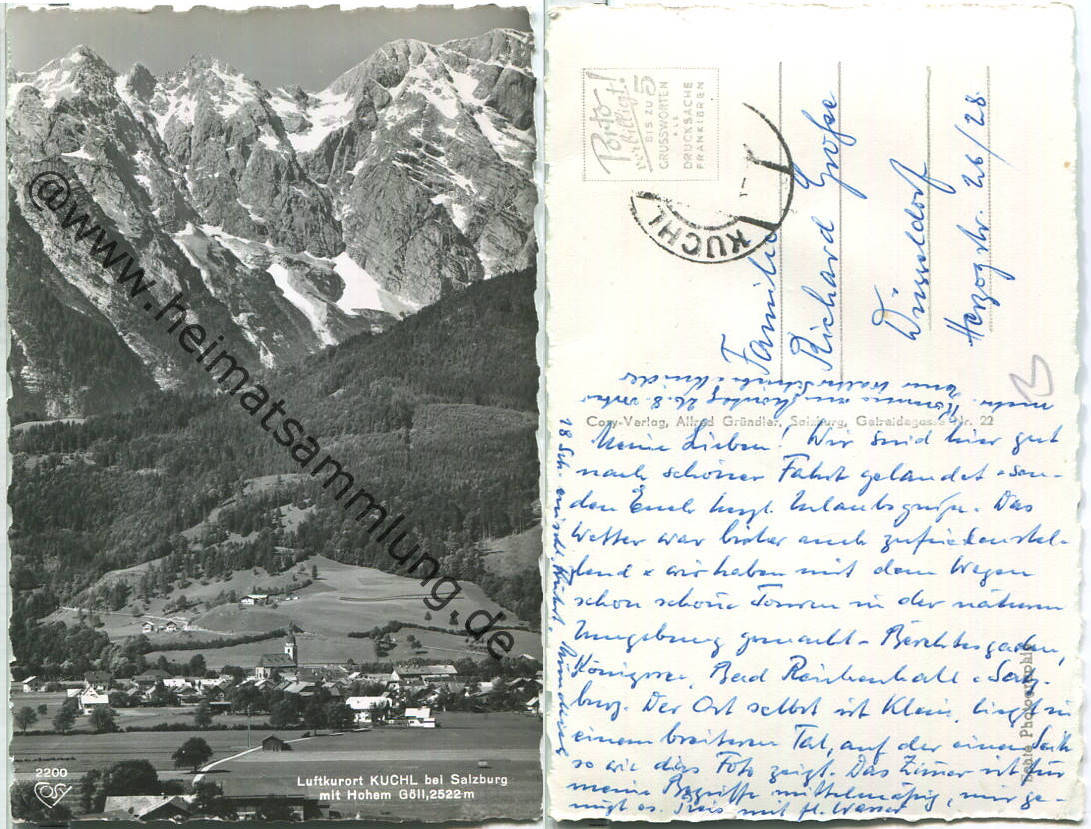 @www.heimatsammlung.de
2200
COSY
Luftkurort KUCHL bei Salzburg
mit Hohem Göll, 2522 m
Porto
verbilligt!
BIS ZU 5
GRUSSWORTEN
ALS
DRUCKSACHE
FRANKIEREN
KUCHL
Familie
Richard Große
Düsseldorf
Herzogstr. 26/28
B
Cosy-Verlag, Alfred Gründler, Salzburg, Getreidegasse Nr. 22
Echte Photographie
Meine Lieben! Wir sind hier gut
nach schöner Fahrt gelandet u. sen-
den Euch herzl. Urlaubsgrüße. Das
Wetter war bisher auch zufriedenstel-
lend u. wir haben mit dem Wagen
schon schöne Touren in der näheren
Umgebung gemacht - Berchtesgaden,
Königssee, Bad Reichenhall u. Salz-
burg. Der Ort selbst ist klein, liegt in
einem breiteren Tal, auf der einen Seite
so wie dies Foto zeigt. Das Zimmer ist für
meine Begriffe mittelmäßig, mir ge-
nügt es. Preis mit fl. Wasser
18 Sch. einschl.